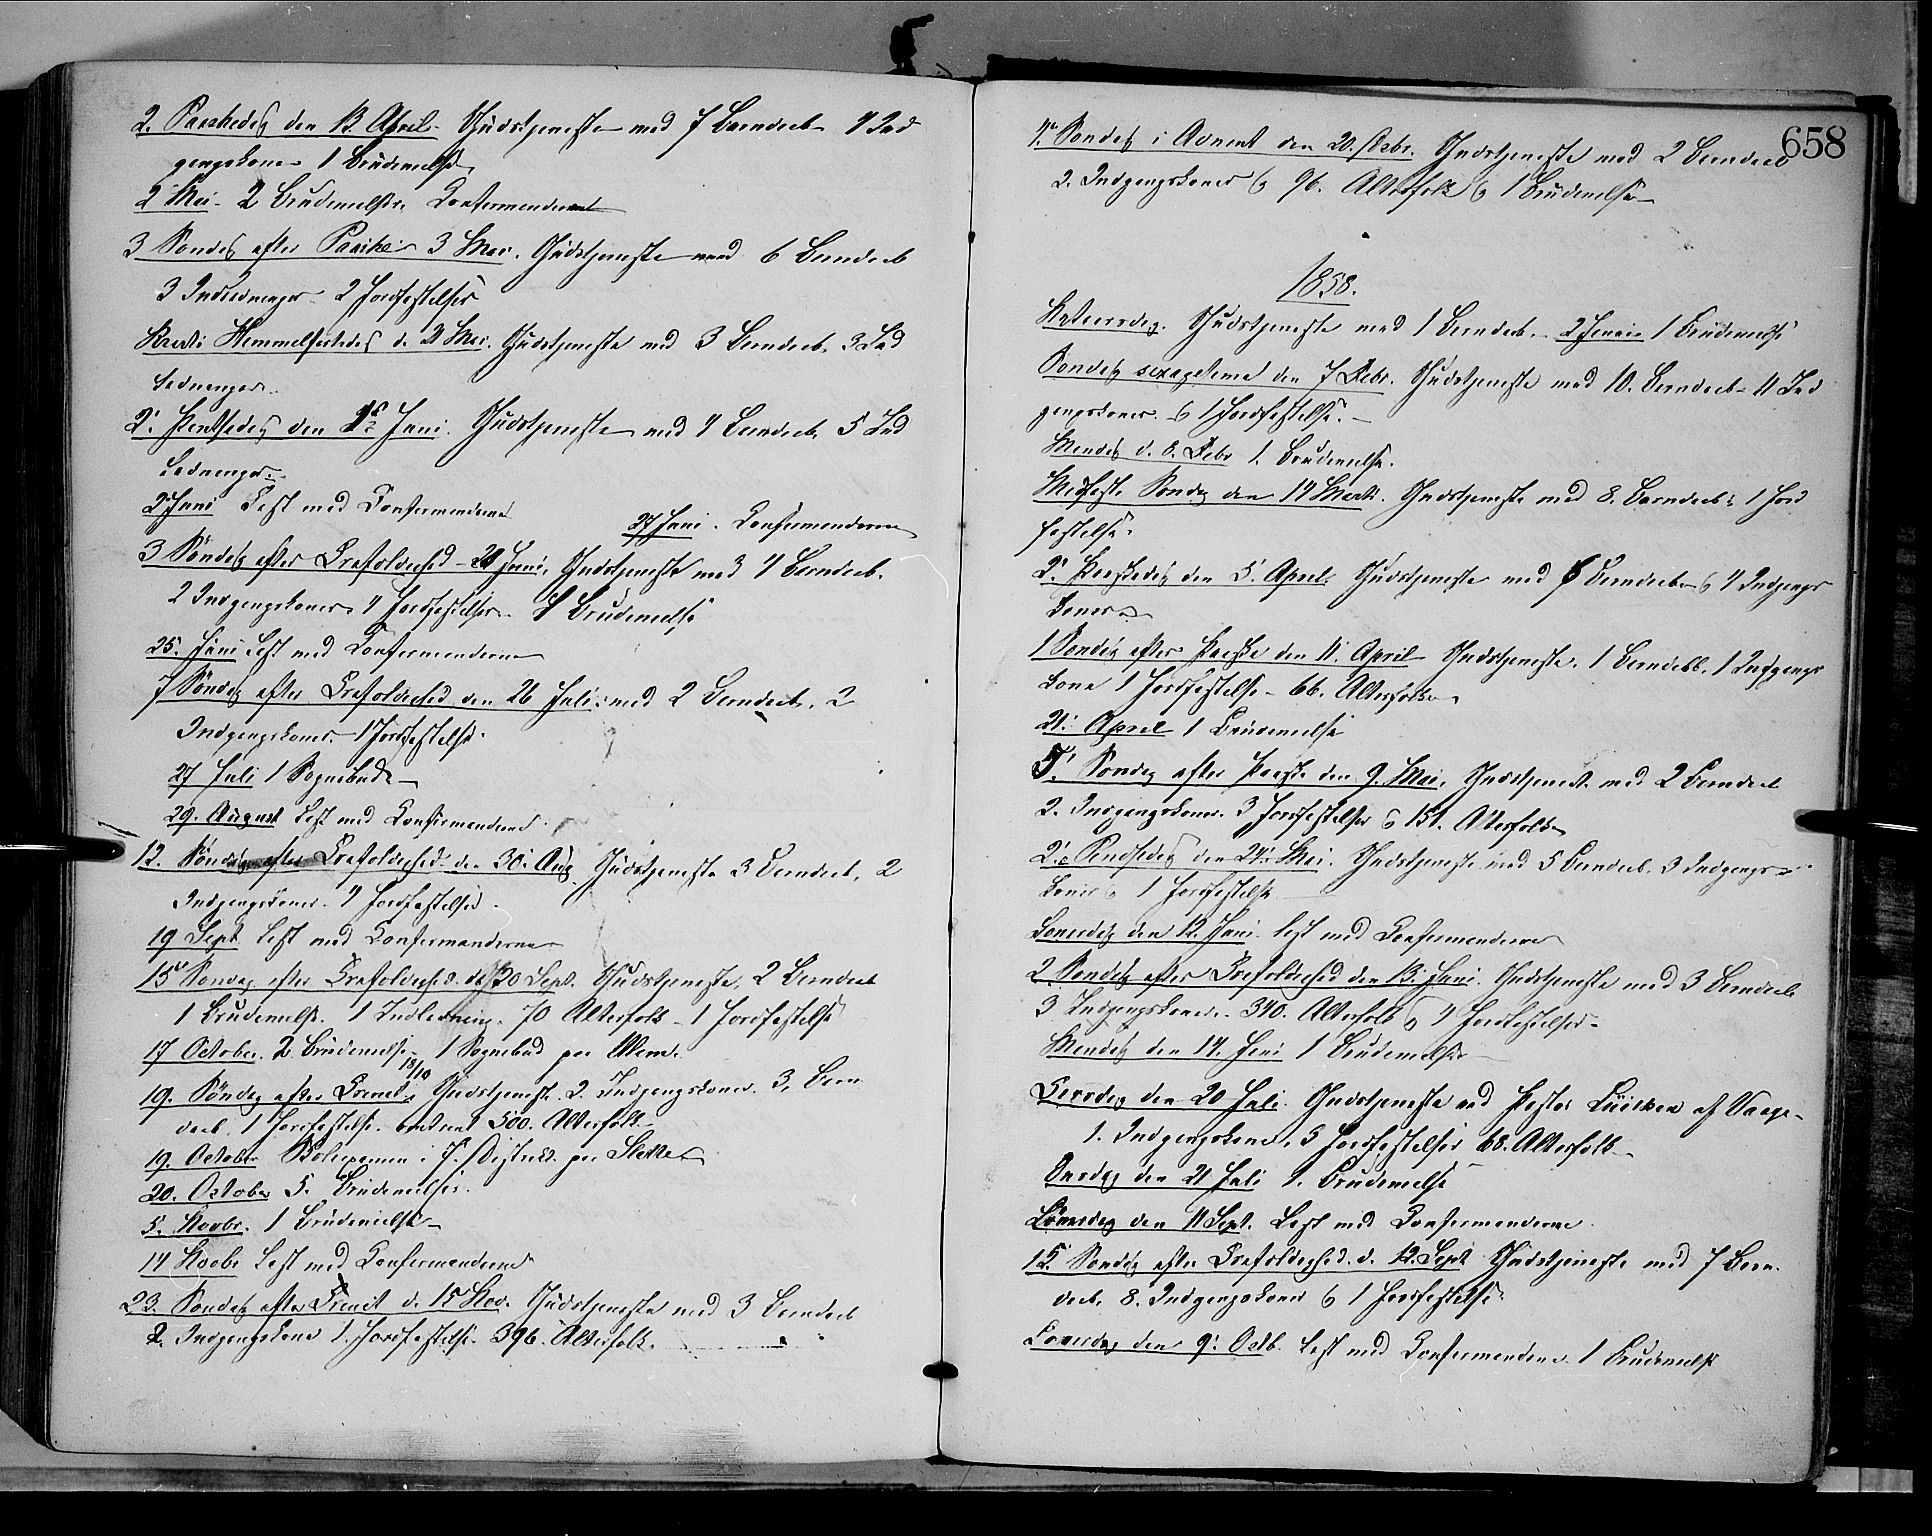 2. Paaskedag den 13 April. Gudstjeneste med 7 Barndaab 4 Ind
gangskoner 1 Brudevielse
2 Mai. 2 Brudevielser. Confirmanderne
3 Søndag efter Paaske 3 Mai. Gudstjeneste med 6 Barndaab
3 Indledninger 2 Jordfæstelser
Kristi Himmelfartsdag d. 21 Mai. Gudstjeneste med 3 Barndaab. 3 Ind
ledninger.
2. Pentsedag den 1 Juni. Gudstjeneste med 4 Barndaab 5 Ind
ledninger.
2 Juni Læst med Confirmanderne
27 Juni. Confirmanderne
3 Søndag efter Trefoldighed 28 Juni. Gudstjeneste med 4 Barndaab.
2 Indgangskoner 4 Jordfæstelser. 4 Brudevielse
25. Juni Læst med Confirmanderne
7 Søndag efter Trefoldighed den 26 Juli med 2 Barndaab. 2
Indgangskoner. 1 Jordfæstelse.
27 Juli 1 Sognebud
29. August Læst med Confirmanderne.
12. Søndag efter Trefoldighed den 30. Aug. Gudstjeneste 3 Barndaab, 2
Indgangskoner. 4 Jordfæstelser.
19 Sept Læst med Confirmanderne
15de Søndag efter Trefoldighed d. 20 Sept. Gudstjeneste, 2 Barndaab
1 Brudevielse. 1 Indledning. 70 Altersfolk. 1 Jordfæstelse
17 October. 2 Brudevielse. 1 Sognebud paa
19. Søndag efter Trinit. 18/10 Gudstjeneste 2. Indgangskoner. 3. Barn
daab 1 Jordfæstelse. omtrent 500. Altersfolk
19. Octobr. Skolexamen i 7. District paa Slette
20. October 5. Brudevielser.
5. Novbr. 1 Brudevielse
14 Novbr Læst med Confirmanderne
23. Søndag efter Trinit d. 15 Nov. Gudstjeneste med 3 Barndaab
2. Indgangskoner 1. Jordfæstelse. 396. Altersfolk.
658
4. Søndag i Advent den 20. Debr. Gudstjeneste med 2 Barndaab
2. Indgangskoner og 96. Altersfolk og 1 Brudevielse
1858.
Nytaarsdag. Gudstjeneste med 1 Barndaab. 2 Januar 1 Brudevielse
Søndag sexagesima den 7 Febr. Gudstjeneste med 10. Barndaab 11 Ind
gangskoner. og 1 Jordfæstelse.
Mandag d. 8. Febr 1. Brudevielse.
Midfaste Søndag den 14 Marts. Gudstjeneste med 8. Barndaab. 1 Jord
fæstelse.
2. Paaskedag den 5. April. Gudstjeneste med 8 Barndaab og 4 Indgangs
koner
1 Søndag efter Paaske den 11. April Gudstjeneste. 1 Barndaab. 1 Indgangs
kone 1 Jordfæstelse. 66. Altersfolk
21. April 1 Brudevielse
5. Søndag efter Paaske den 9. Mai. Gudstjenest. med 2 Barndaab
2. Indgangskoner. 3 Jordfæstelser og 151. Altersfolk
2. Pindsedag den 24. Mai. Gudstjeneste med 5 Barndaab. 3 Indgangs
koner og 1 Jordfæstelse
Løverdag den 12. Juni læst med Confirmanderne
2. Søndag efter Trefoldighed den 13. Juni. Gudstjeneste med 3 Barndaab
3 Indgangskoner. 340. Altersfolk og 4 Jordfæstelser.
Mandag den 14. Juni 1 Brudevielse
Tirsdag den 20 Juli. Gudstjeneste ved Pastor Lüicken af Vaage.
1. Indgangskone, 5 Jordfæstelser 68. Altersfolk
Onsdag den 21 Juli 1. Brudevielse
Løverdag den 11 Sept. Læst med Confirmanderne.
15. Søndag efter Trefoldighed d. 12. Sept Gudstjeneste med 7 Barn.
daab. 8. Indgangskoner og 1 Jordfæstelse.
Løverdag den 9. Octb. Læst med Confirmanderne. 1 Brudevielse